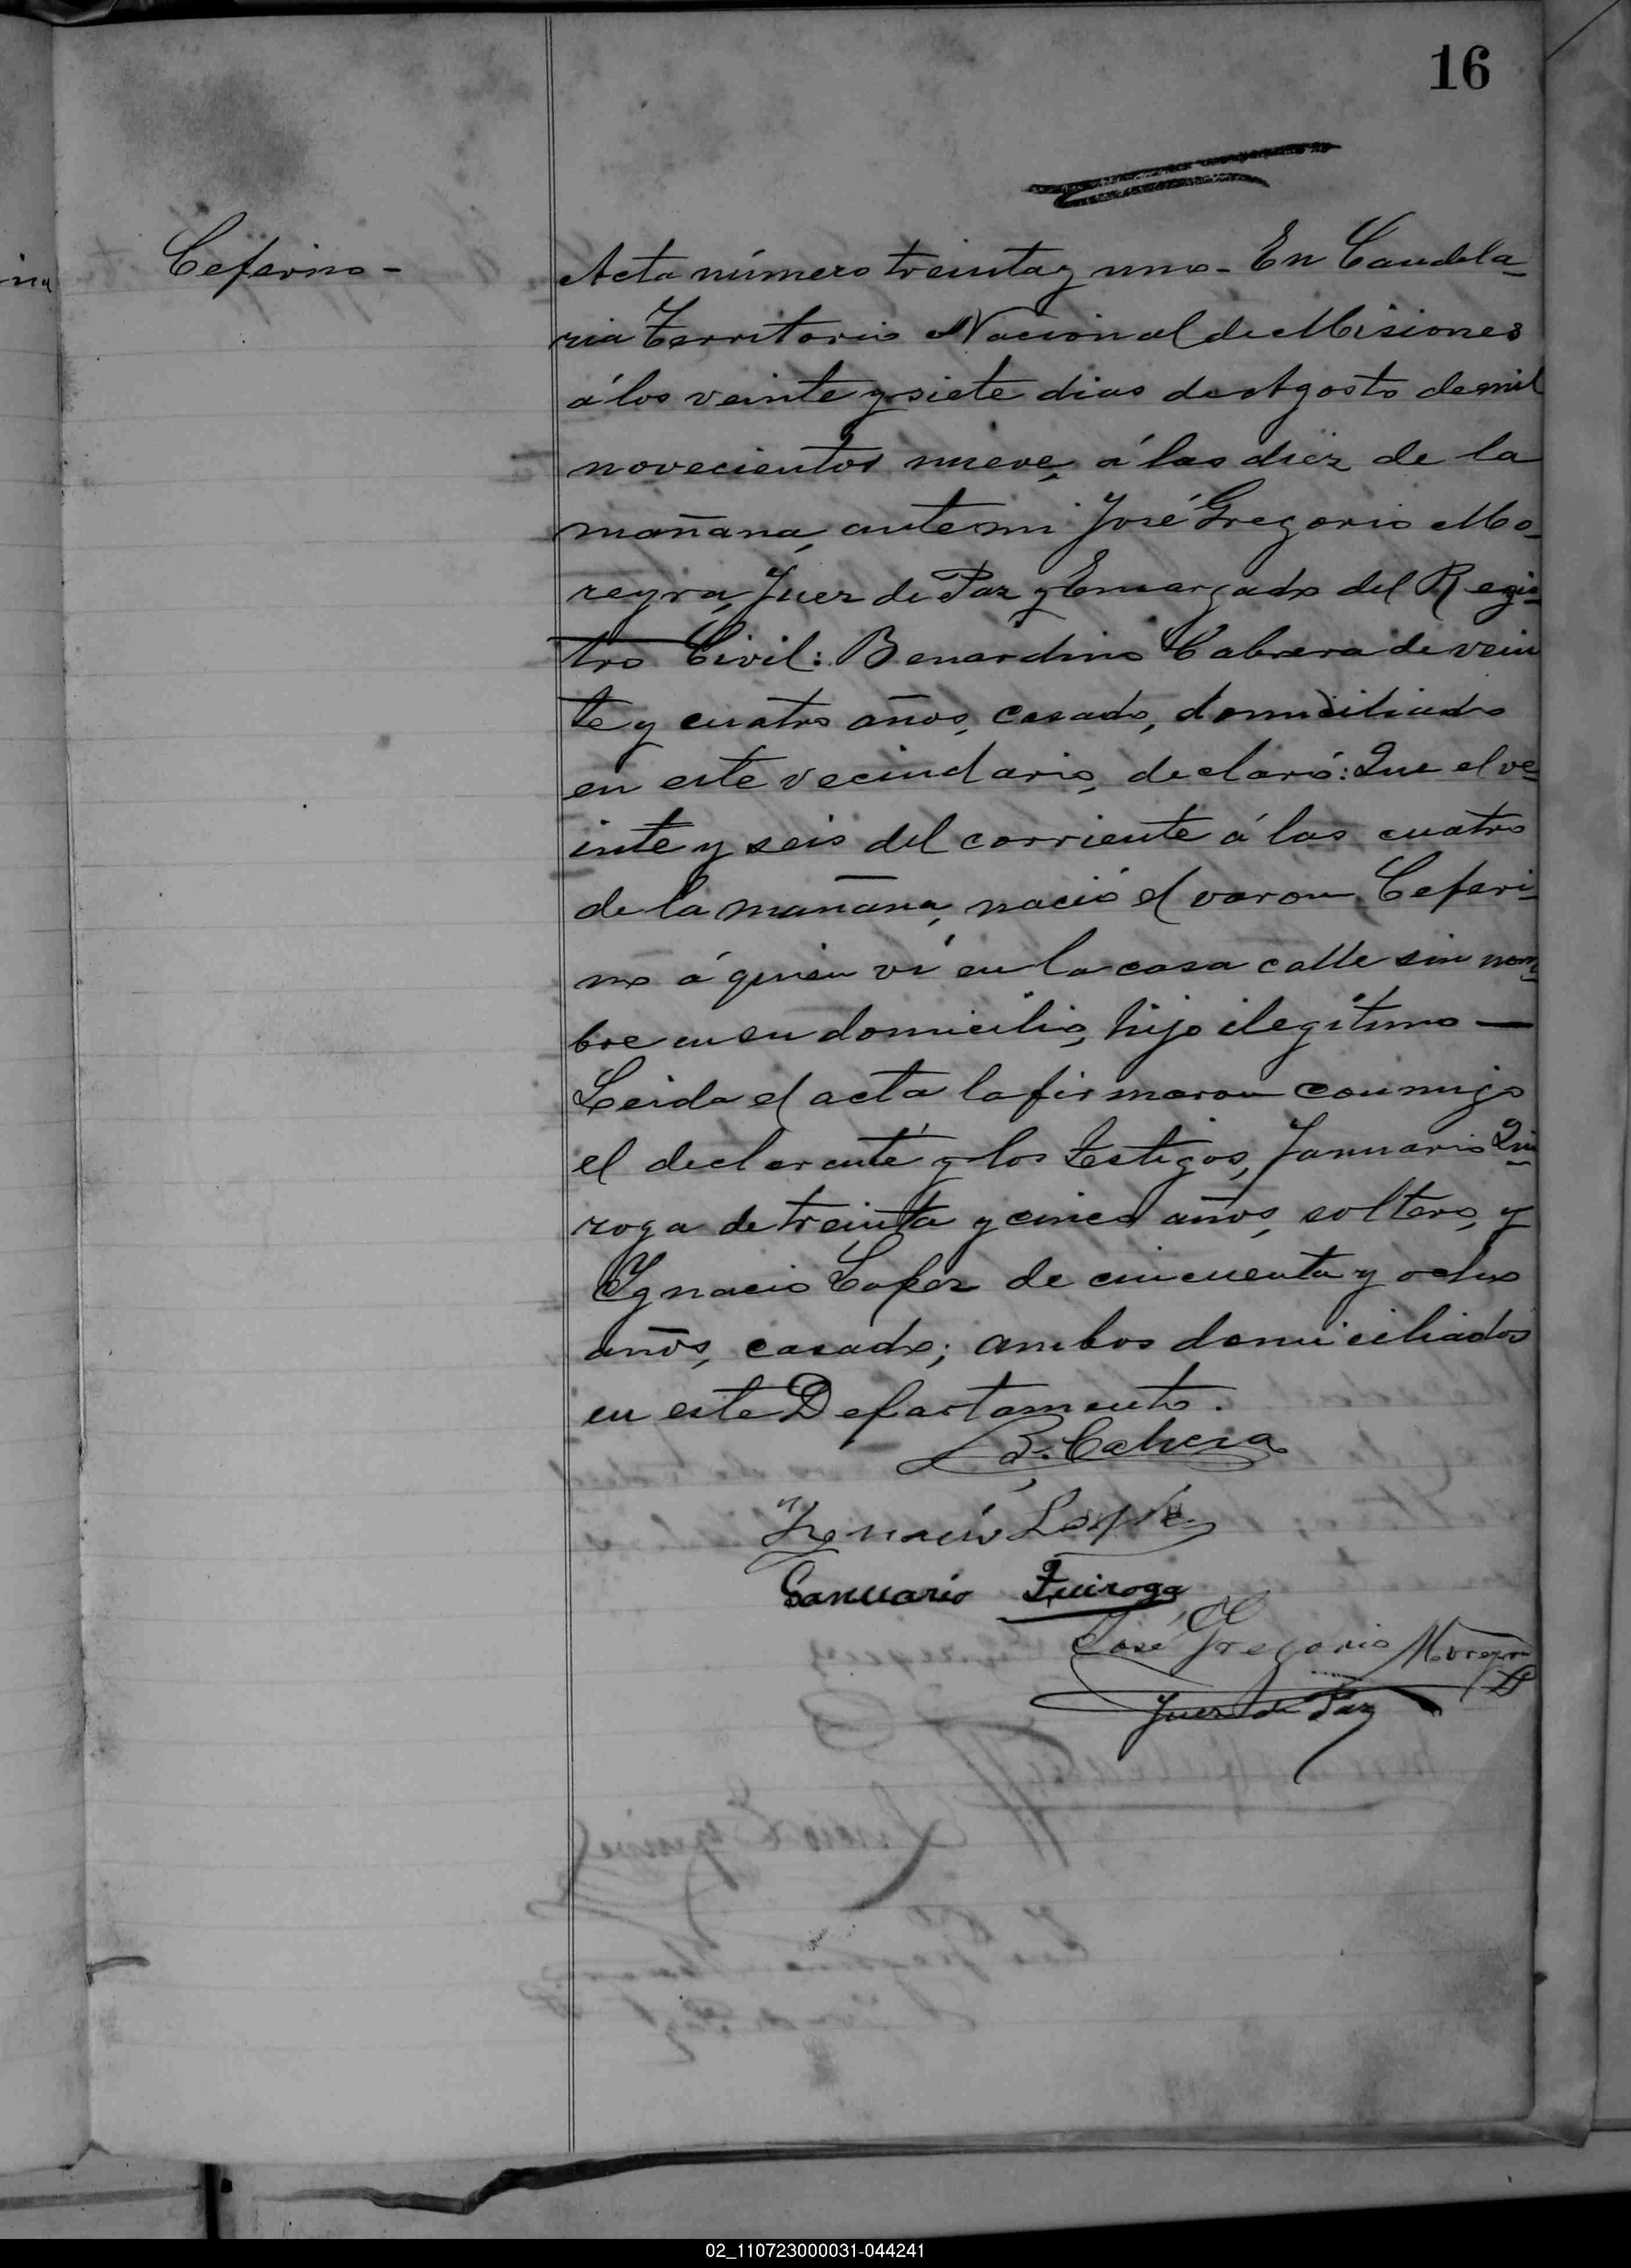 16
Ceferino -
Acta número treinta y uno - En Candela-
ria Territorio Nacional de Misiones
á los veinte y siete dias de Agosto de mil
novecientos nueve, á las diez de la
mañana, ante mi José Gregorio Mo-
reyra, Juez de Paz y Encargado del Regis-
tro Civil: Benardino Cabrera de vein
te y cuatro años, casado, domiciliado
en este vecindario, declaró: Que el ve-
inte y seis del corriente á las cuatro
de la mañana, nació el varon Ceferi-
no á quien ví en la casa calle sin nom-
bre en su domicilio, hijo ilegítimo —
Leida el acta la firmaron conmigo
el declarante y los testigos, Januario Qui-
roga de treinta y cinco años, soltero, y
Ygnacio Lopez de cincuenta y ocho
años, casado; ambos domiciliados
en este Departamento.
B. Cabrera
Ygnacio Lopez
Januario Quiroga
José Gregorio Moreyra
Juez de Paz
02_110723000031-044241